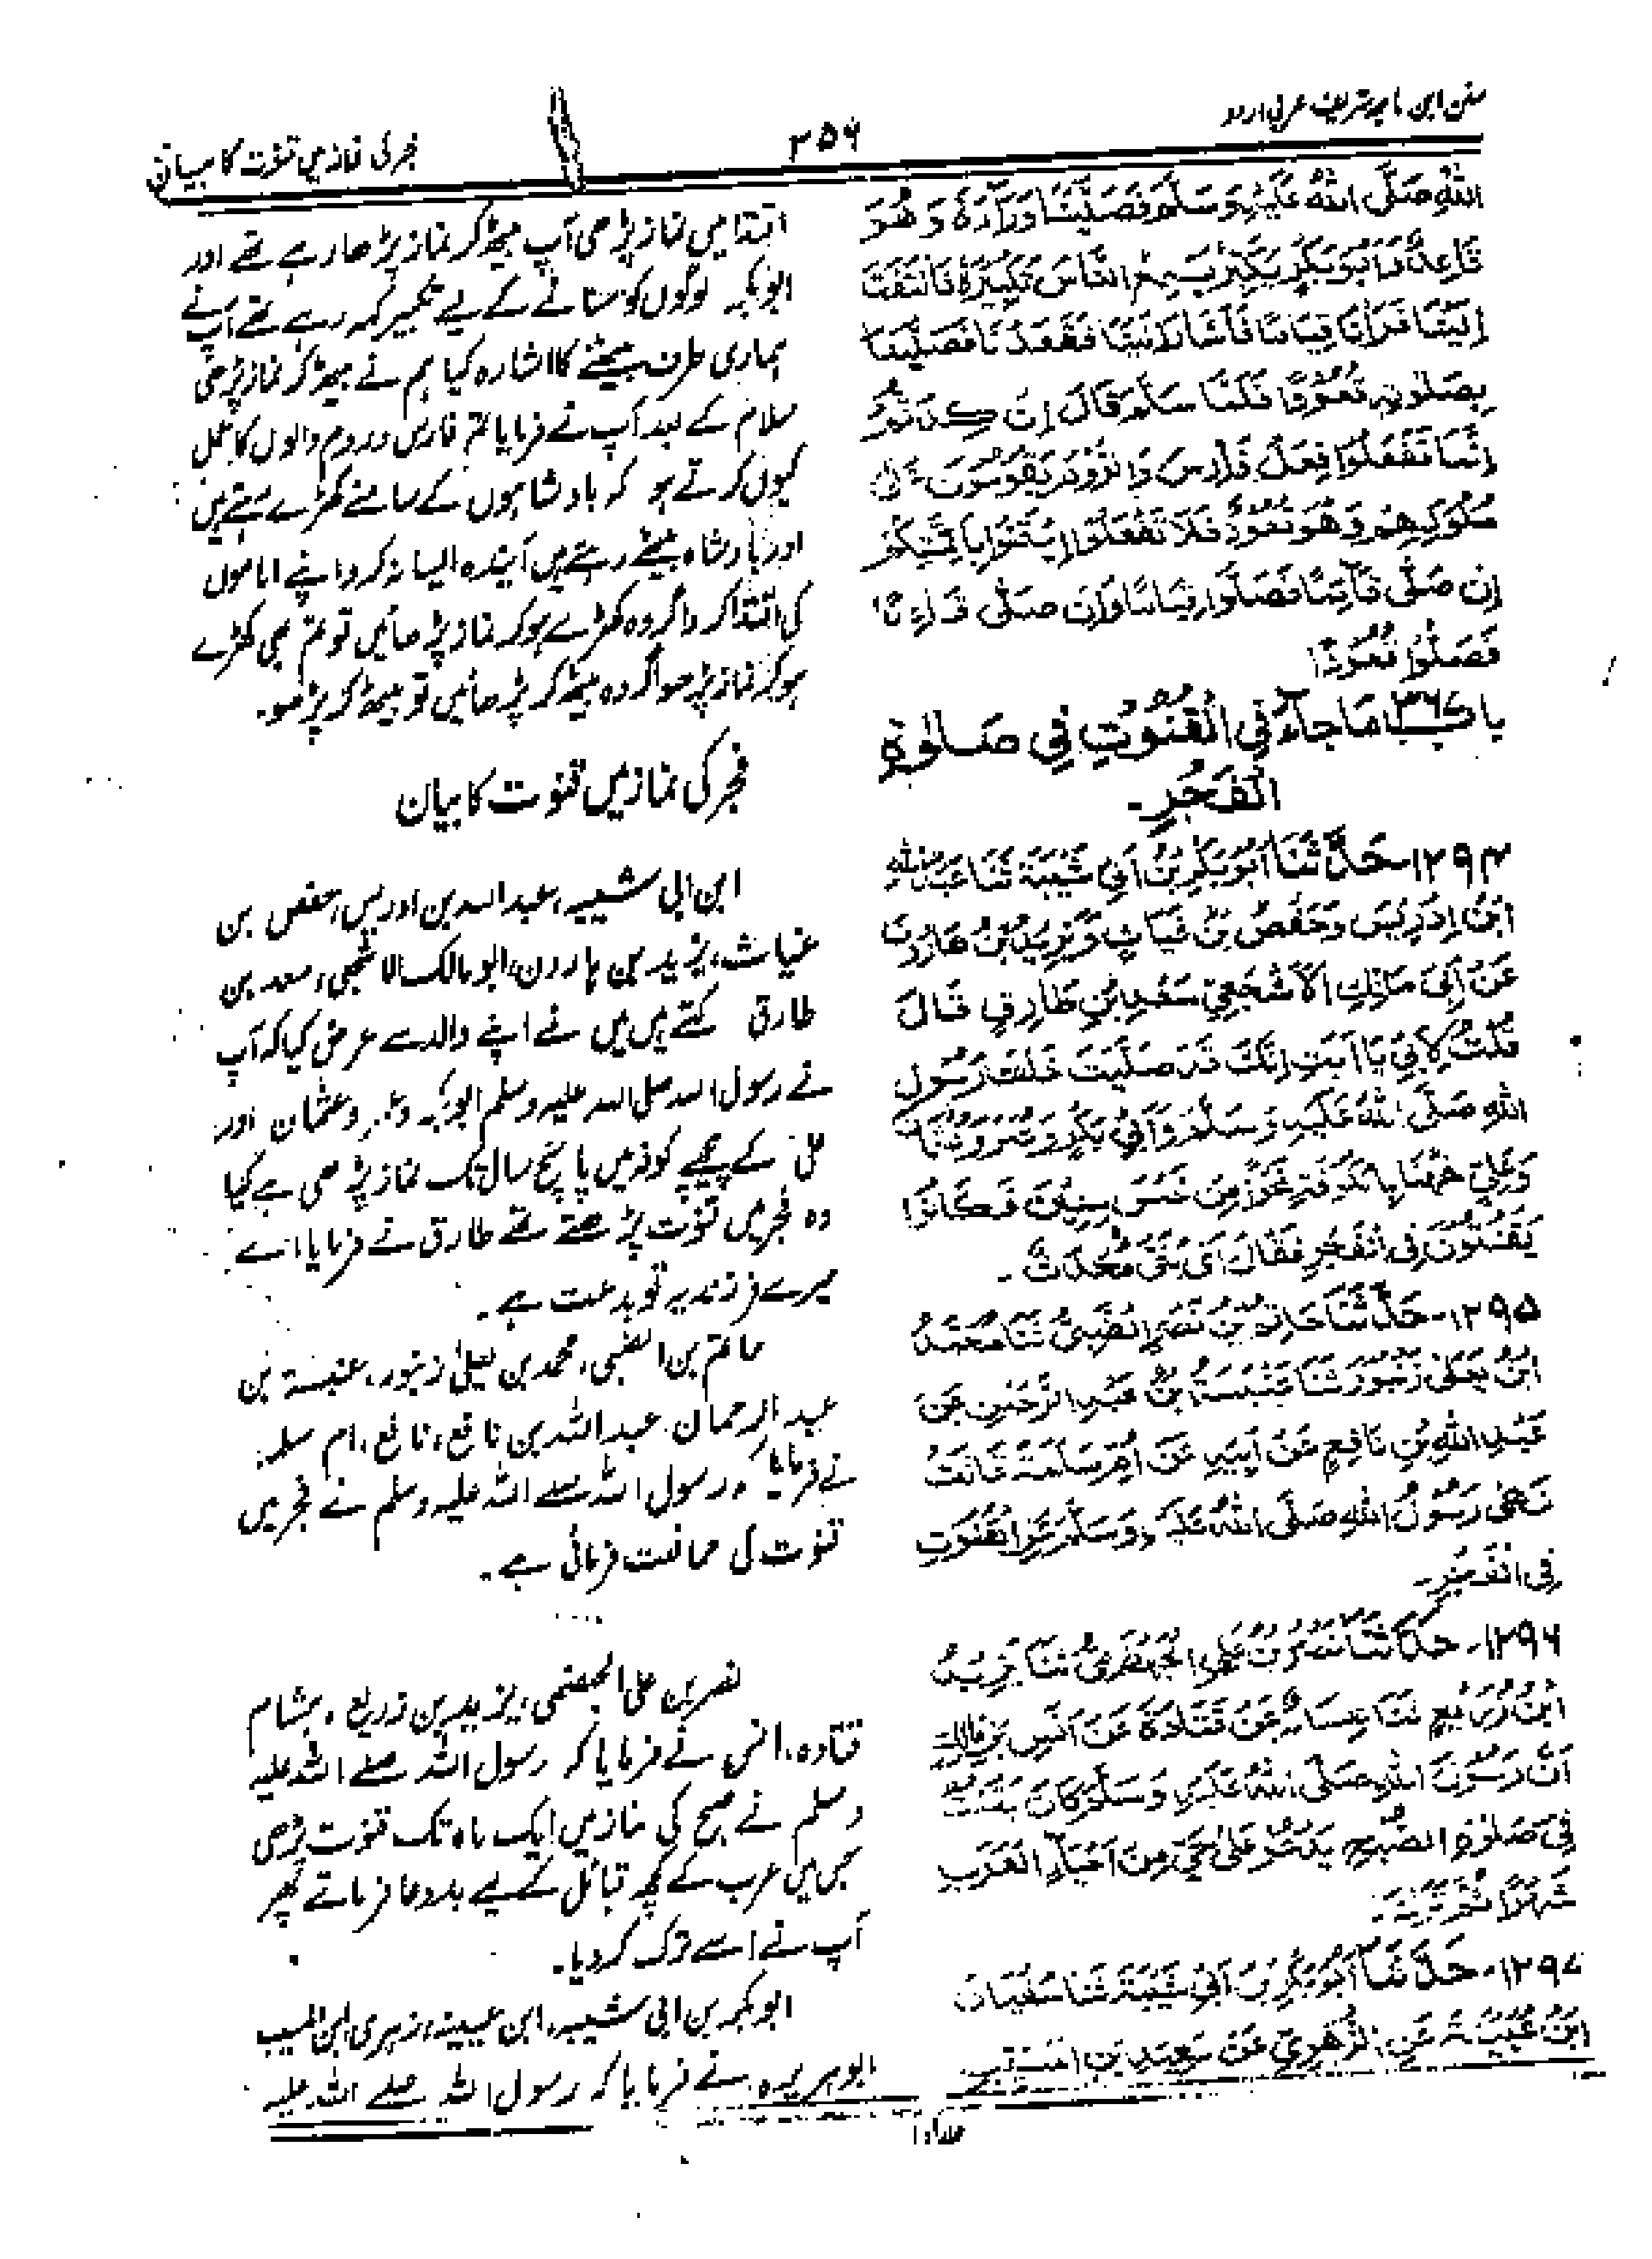 سنن ابن ماجہ شریف عربی اردو
۳۵۶
فجر کی نماز میں قنوت کا بیان
اللهِ صَلَّى اللهُ عَلَيْهِ وَسَلَّمَ فَصَلَّيْنَا وَرَاءَهٗ وَهُوَ
قَاعِدٌ وَاَبُوْبَكْرٍ يُكَبِّرُ يُسْمِعُ النَّاسَ تَكْبِيْرَهٗ فَالْتَفَتَ
اِلَيْنَا فَرَاٰنَا قِيَامًا فَاَشَارَ اِلَيْنَا فَقَعَدْنَا فَصَلَّيْنَا
بِصَلٰوتِهٖ قُعُوْدًا فَلَمَّا سَلَّمَ قَالَ اِنْ كِدْتُّمْ
اَنْ تَفْعَلُوْا فِعْلَ فَارِسَ وَالرُّوْمِ يَقُوْمُوْنَ عَلٰى
مُلُوْكِهِمْ وَهُمْ قُعُوْدٌ فَلَا تَفْعَلُوْا اِئْتَمُّوْا بِاَئِمَّتِكُمْ
اِنْ صَلّٰى قَائِمًا فَصَلُّوْا قِيَامًا وَاِنْ صَلّٰى قَاعِدًا
فَصَلُّوْا قُعُوْدًا
باب ۳۶۷ مَاجَاءَ فِي الْقُنُوْتِ فِيْ صَلٰوةِ
الْفَجْرِ۔
۱۲۹۴۔ حَدَّثَنَا اَبُوْبَكْرِ بْنُ اَبِيْ شَيْبَةَ ثَنَا عَبْدُ اللهِ
ابْنُ اِدْرِيْسَ وَحَفْصُ بْنُ غِيَاثٍ وَيَزِيْدُ بْنُ هَارُوْنَ
عَنْ اَبِيْ مَالِكٍ الْاَشْجَعِيِّ سَعْدِ بْنِ طَارِقٍ قَالَ
قُلْتُ لِاَبِيْ يَا اَبَتِ اِنَّكَ قَدْ صَلَّيْتَ خَلْفَ رَسُوْلِ
اللهِ صَلَّى اللهُ عَلَيْهِ وَسَلَّمَ وَاَبِيْ بَكْرٍ وَعُمَرَ وَعُثْمَانَ
وَعَلِيٍّ هٰهُنَا بِالْكُوْفَةِ نَحْوًا مِنْ خَمْسِ سِنِيْنَ فَكَانُوْا
يَقْنُتُوْنَ فِي الْفَجْرِ فَقَالَ اَيْ بُنَيَّ مُحْدَثٌ۔
۱۲۹۵۔ حَدَّثَنَا حَاتِمُ بْنُ نَصْرٍ الضَّبِّيُّ ثَنَا مُحَمَّدُ
ابْنُ يَعْلٰى زُنْبُوْرٌ ثَنَا عَنْبَسَةُ بْنُ عَبْدِ الرَّحْمٰنِ عَنْ
عَبْدِ اللهِ بْنِ نَافِعٍ عَنْ اَبِيْهِ عَنْ اُمِّ سَلَمَةَ قَالَتْ
نَهٰى رَسُوْلُ اللهِ صَلَّى اللهُ عَلَيْهِ وَسَلَّمَ عَنِ الْقُنُوْتِ
فِي الْفَجْرِ۔
۱۲۹۶۔ حَدَّثَنَا نَصْرُ بْنُ عَلِيٍّ الْجَهْضَمِيُّ ثَنَا يَزِيْدُ
ابْنُ زُرَيْعٍ ثَنَا هِشَامٌ عَنْ قَتَادَةَ عَنْ اَنَسِ بْنِ مَالِكٍ
اَنَّ رَسُوْلَ اللهِ صَلَّى اللهُ عَلَيْهِ وَسَلَّمَ كَانَ يَقْنُتُ
فِيْ صَلٰوةِ الصُّبْحِ يَدْعُوْ عَلٰى حَيٍّ مِنْ اَحْيَاءِ الْعَرَبِ
شَهْرًا ثُمَّ تَرَكَهٗ۔
۱۲۹۷۔ حَدَّثَنَا اَبُوْبَكْرِ بْنُ اَبِيْ شَيْبَةَ ثَنَا سُفْيَانُ
ابْنُ عُيَيْنَةَ عَنِ الزُّهْرِيِّ عَنْ سَعِيْدِ بْنِ الْمُسَيَّبِ
اقتدا میں نماز پڑھی آپ بیٹھ کر نماز پڑھا رہے تھے اور
ابوبکر لوگوں کو سنانے کے لیے تکبیر کہہ رہے تھے آپ نے
ہماری طرف بیٹھنے کا اشارہ کیا ہم نے بیٹھ کر نماز پڑھی
سلام کے بعد آپ نے فرمایا تم فارس و روم والوں کا عمل
کیوں کرتے ہو کہ بادشاہوں کے سامنے کھڑے رہتے ہیں
اور بادشاہ بیٹھے رہتے ہیں آیندہ ایسا نہ کرو اپنے اماموں
کی اقتدا کرو اگر وہ کھڑے ہو کر نماز پڑھائیں تو تم بھی کھڑے
ہو کر نماز پڑھو اگر وہ بیٹھ کر پڑھائیں تو بیٹھ کر پڑھو۔
فجر کی نماز میں قنوت کا بیان
ابن ابی شیبہ، عبداللہ بن ادریس، حفص بن
غیاث، یزید بن ہارون، ابو مالک الاشجعی، سعد بن
طارق کہتے ہیں میں نے اپنے والد سے عرض کیا کہ آپ
نے رسول اللہ صلی اللہ علیہ وسلم ابوبکر و عمر و عثمان اور
علی کے پیچھے کوفہ میں پانچ سال تک نماز پڑھی ہے کیا
وہ فجر میں قنوت پڑھتے تھے طارق نے فرمایا، اے
میرے فرزند یہ تو بدعت ہے۔
حاتم بن الضبی، محمد بن یعلیٰ زنبور، عنبسۃ بن
عبدالرحمان عبداللہ بن نافع، نافع، ام سلمہ
نے فرمایا کہ رسول اللہ صلے اللہ علیہ وسلم نے فجر میں
قنوت کی ممانعت فرمائی ہے۔
نصر بن علی الجہضمی، یزید بن زریع، ہشام
قتادہ، انس نے فرمایا کہ رسول اللہ صلے اللہ علیہ
وسلم نے صبح کی نماز میں ایک ماہ تک قنوت پڑھی
جس میں عرب کے کچھ قبائل کے لیے بددعا فرماتے پھر
آپ نے اسے ترک کر دیا۔
ابوبکر بن ابی شیبہ، ابن عیینہ، زہری ابن المسیب
ابو ہریرہ نے فرمایا کہ رسول اللہ صلے اللہ علیہ
جلد اول